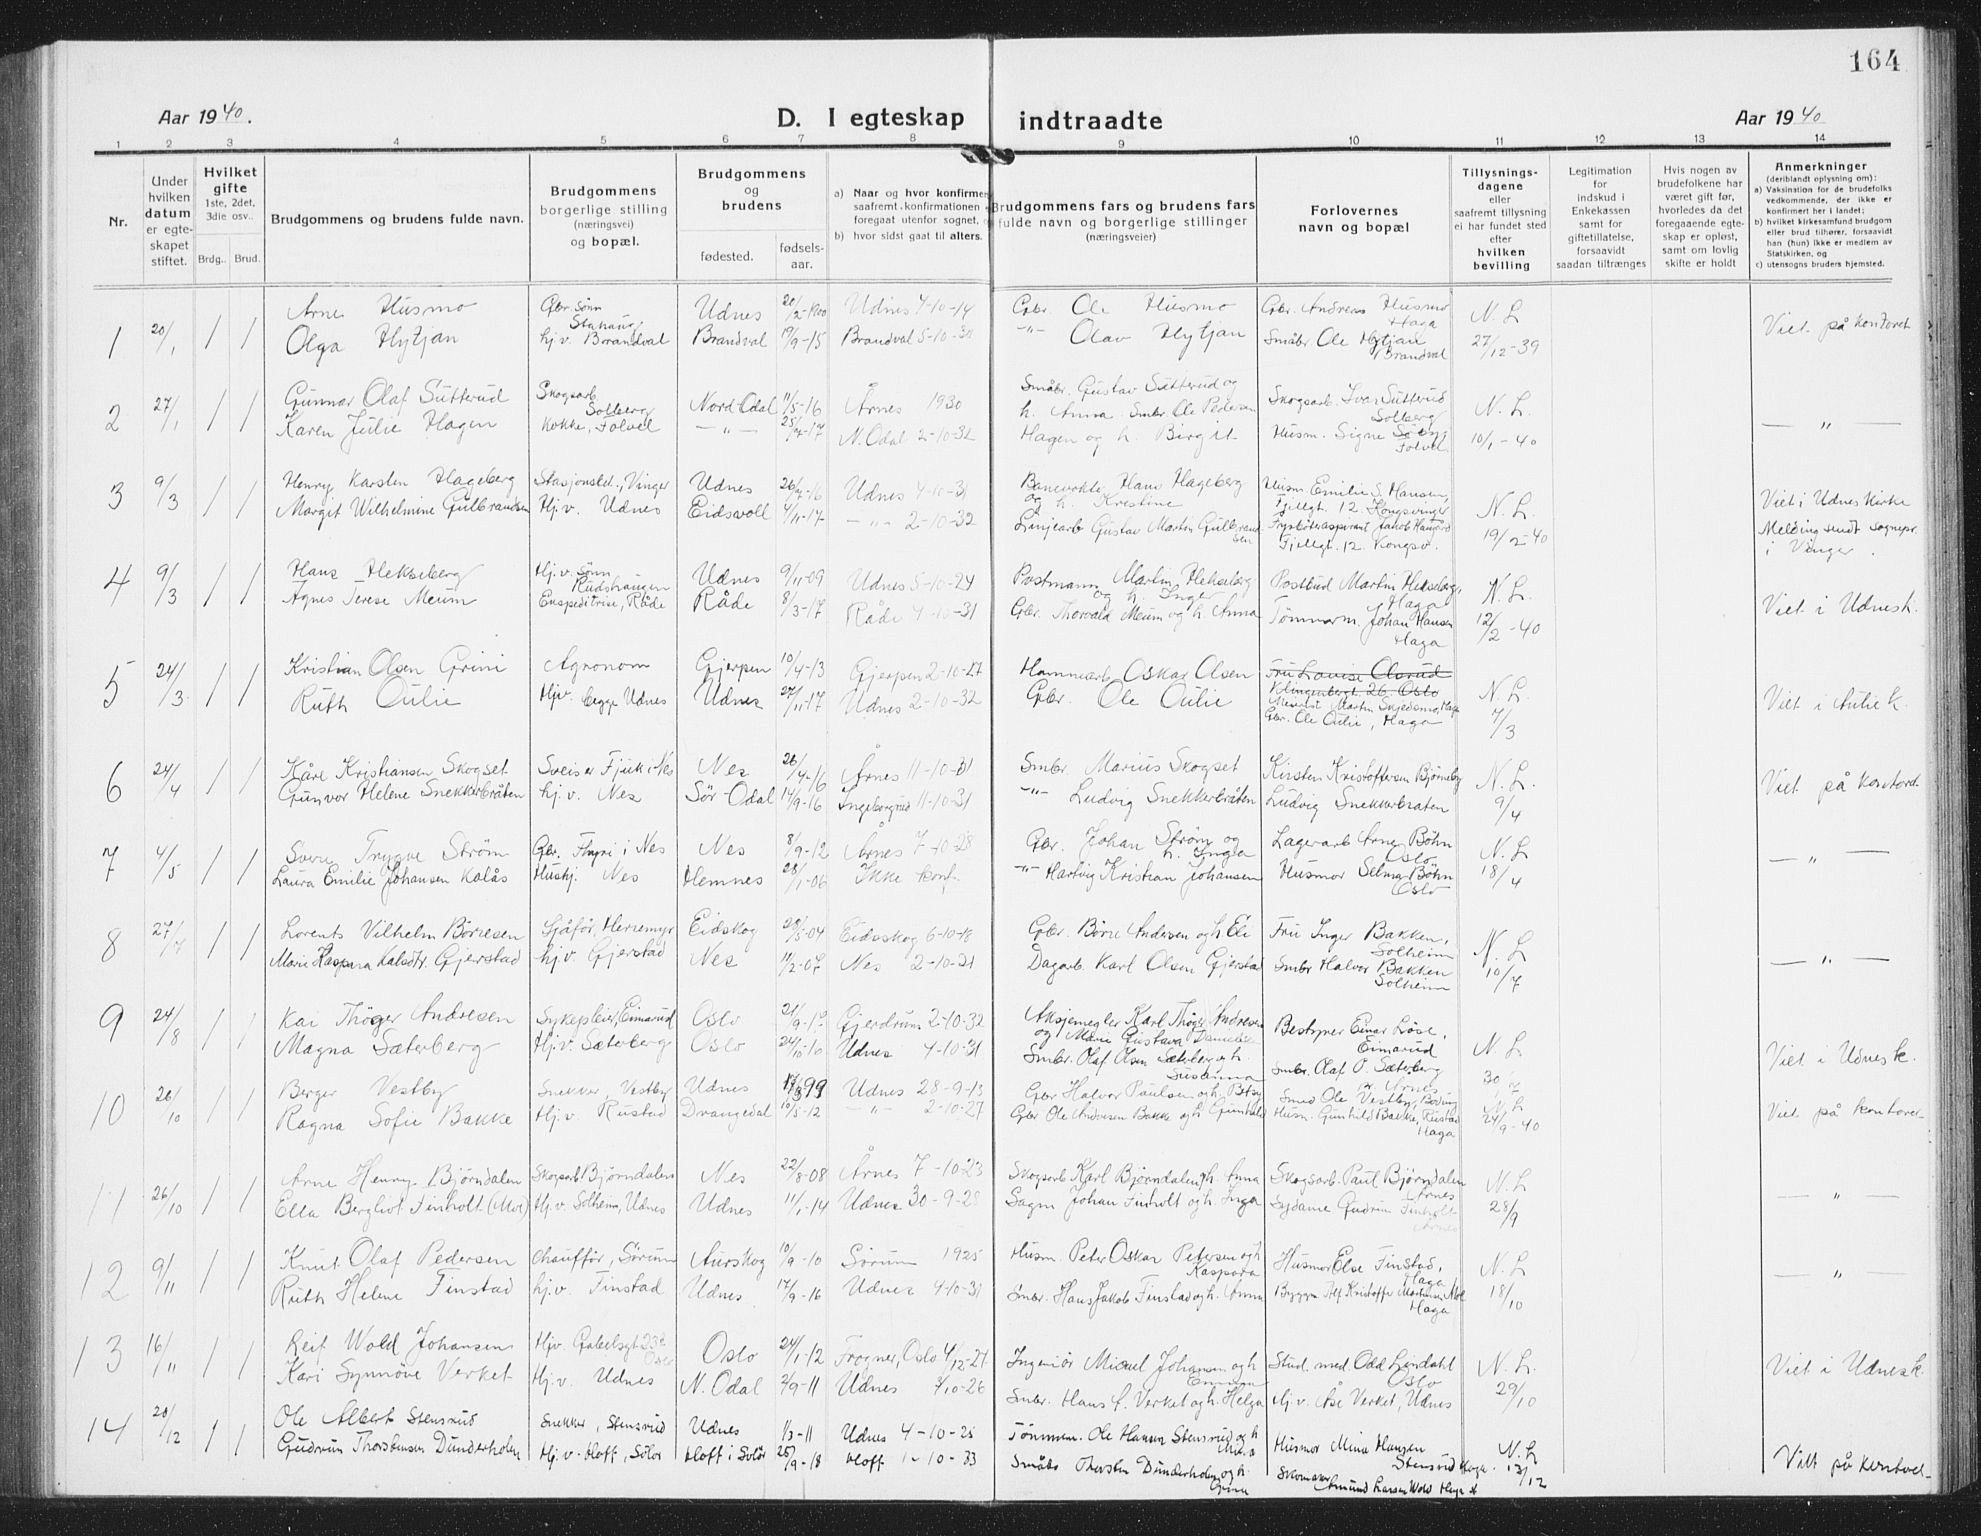 164
Aar 1940.
D. I egteskap indtraadte
Aar 1940
1 2 3 4 5 6 7 8 9 10 11 12 13 14
Nr.
Under hvilken datum er egteskapet stiftet.
Hvilket gifte 1ste, 2det, 3die osv..
Brdg.. Brud.
Brudgommens og brudens fulde navn.
Brudgommens borgerlige stilling (næringsvei) og bopæl.
Brudgommens og brudens
fødested.
fødsels-aar.
a) Naar og hvor konfirmer
saafremt konfirmationen
foregaat utenfor sognet,
b) hvor sidst gaat til alters.
Brudgommens fars og brudens fars
fulde navn og borgerlige stillinger
(næringsveier)
Forlovernes navn og bopæl
Tillysnings-dagene eller saafremt tillysning ei har fundet sted efter hvilken bevilling
Legitimation for indskud i Enkekassen samt for giftetillatelse, forsaavidt saadan tiltrænges
Hvis nogen av brudefolkene har været gift før, hvorledes da det foregaaende egteskap er opløst, samt om lovlig skifte er holdt
Anmerkninger
(deriblandt oplysning om):
a) Vaksination for de brudefolks vedkommende, der ikke er konfirmert her i landet;
b) hvilket kirkesamfund brudgom eller brud tilhører, forsaavidt han (hun) ikke er medlem av Statskirken, og
c) utensogns bruders hjemsted.
1 20/1 1 1 Arne Husmo Gbr. sønn Udnes 20/2-1900 Udnes 4-10-14 Gbr. Ole Husmo Gbr. Andreas Husmo Haga N. L. Viet på kontoret
Olga Hytjan hj.v. Brandval Brandval 19/9-15 Brandval 5-10-30 -"- Olav Hytjan Småbr. Ole Hytjan Brandval 27/12-39
2 27/1 1 1 Gunnar Olaf Sutterud Skogsarb. Solberg Nord-Odal 11/5-16 Årnes 1930 Småbr. Gustav Sutterud og h. Anna Skogsarb. Ivar Sutterud Solberg N. L. — " —
Karen Julie Hagen Kokke, Folvel -"- N. Odal 2-10-32 Smbr. Ole Pedersen Hagen og h. Birgit Husm. Signe Folvel 10/1-40
3 9/3 1 1 Henry Karsten Hageberg Vinger Udnes 26/7-16 Udnes 4-10-31 Hans Hageberg og h. Kristine Husm. Emilie S. Hansen, Fjellgt. 12. Kongsvinger N. L. Viet i Udnes Kirke
Margit Wilhelmine Gulbrandsen Hj.v. Udnes Eidsvoll 4/11-17 -"- 2-10-32 Linjearb. Gustav Martin Gulbrandsen Fjellgt. 12. Kongsv. 19/2-40 Melding sendt sognepr. i Vinger.
4 9/3 1 1 Hans Hekseberg Hj.v. sønn Rudshaugen Udnes 9/11-09 Udnes 5-10-24 Postmann Martin Hekseberg og h. Inger Postbud Martin Hekseberg, Haga N. L. Viet i Udnes k.
Agnes Terese Meum Enspeditrise, Råde Råde 8/3-17 Råde 4-10-31 Gbr. Thorvald Meum og h. Anna Tømmerm. Johan Hansen Haga 12/2-40
5 24/3 1 1 Kristian Olsen Grini Agronom Gjerpen 10/4-13 Gjerpen 2-10-27 Hammarb. Oskar Olsen Fru Lovise Olsrud Klingenbergt. 26. Oslo N. L. Viet i Aulie k.
Ruth Oulie Hj.v. begge Udnes Udnes 27/11-17 Udnes 2-10-32 Gbr. Ole Oulie Martin Skjedsmo, Haga Gbr. Ole Oulie, Haga 7/3
6 24/4 1 1 Kåre Kristiansen Skogset Sveiser Fjuk i Nes Nes 26/4-16 Årnes 11-10-31 Smbr. Marius Skogset Kirsten Kristoffersen Bjørneby N. L. Viet på kontoret
Gunvor Helene Snekkerbråten hj.v. Nes Sør-Odal 14/9-16 Ingeborgrud 11-10-31 -"- Ludvig Snekkerbråten Ludvig Snekkerbraten 9/4
7 4/5 1 1 Sverre Trygve Strøm Gbr. i Nes Nes 8/9-12 Årnes 7-10-28 Gbr. Johan Strøm og h. Inga Lagerarb. Arne Bøhn Oslo N. L. — " —
Laura Emilie Johansen Kalås Hushj. Nes Hemnes 28/1-06 Ikke konf. -"- Hartvig Kristian Johansen Husmor Selma Bøhn Oslo 18/4
8 27/7 1 1 Lorents Vilhelm Børresen Sjåfør, Herremyr Eidskog 20/5-04 Eidsskog 6-10-18 Gbr. Børre Andersen og h. Eli Fru Inger Bakken, Solheim N. L. — " —
Marie Kaspara Kalsdtr. Gjerstad hj.v. Gjerstad Nes 11/2-07 Nes 2-10-21 Dagarb. Karl Olsen Gjerstad Smbr Halvor Bakken Solheim 10/7
9 24/8 1 1 Kai Thøger Andresen Sykepleier, Eimarud Oslo Gjerdrum 2-10-32 Aksjemegler Karl Thøger Andresen og Marie Gustava Bestyrer Einar Løse, Eimarud N. L. Viet i Udnes k.
Magna Sæterberg Hj.v. Sæterberg Oslo 24/10-10 Udnes 4-10-31 Smbr. Olaf Olsen Sæterberg og h. Susanna Smbr. Olaf O. Sæterberg Årnes 30
10 26/10 1 1 Berger Vestby Snekker Vestby Udnes 99 Udnes 28-9-13 Gbr Halvor Paulsen og h. Betsy Smed Ole Vestby, Bodung N. L. Viet på kontoret
Ragna Sofie Bakke Hj.v. Rustad Drangedal 10/5-12 -"- 2-10-27 Gbr Ole Andersen Bakke og h. Gunhild Husm. Gunhild Bakke, Rustad Haga 24/9-40
11 26/10 1 1 Arne Henry Bjørndalen Skogsarb Bjørndalen Nes 22/8-08 Årnes 7-10-23 Skogsarb Karl Bjørndalen og h. Anna Skogsarb. Paul Bjørndalen Årnes N. L. — " —
Ella Bergliot Finholt (Moe) Hj.v. Solheim, Udnes Udnes 11/1-14 Udnes 30-9-28 Sagm Johan Finholt og h. Inga Sydame Gudrun Finholt Årnes 28/9
12 9/11 1 1 Knut Olaf Pedersen Chauffør, Sørum Aurskog 10/9-10 Sørum 1925 Husm. Peter Oskar Petersen og h. Kaspara Husmor Else Finstad, Haga N. L. — " —
Ruth Helene Finstad hj.v. Finstad Udnes 17/9-16 Udnes 4-10-31 Smbr. Hans Jakob Finstad og h. Anna Byggm. Alf Kristoffer Haga 18/10
13 16/11 1 1 Reif Wold Johansen Hj.v. Gabelsgt Oslo Oslo 24/1-12 Frogner, Oslo 4/12-27 Ingeniør Johansen og h. Stud. med. Odd Lindahl Oslo N. L. Viet i Udnes k.
Kari Synnøve Verket Hj.v. Udnes N. Odal 2/9-11 Udnes 3/10-26 Smbr. Hans Verket og h. Helga Hj.v. Åse Verket, Udnes 29/10
14 20/12 1 1 Ole Albert Stensrud Snekker, Stensrud Udnes 1/3-11 Udnes 4-10-25 Tømmerm. Ole Hansen Stensrud og h. Husmor Mina Hansen Stensrud Haga N. L. Vilt på kontoret
Gudrun Thorstensen Dunderholen Hj.v. Hoff, Solør Hoff i Solør 25/9-18 Hoff 1-10-33 Småbr. Thorsten Dunderholen og h. Skomaker Amund Larsen Wold Haga st 12/12